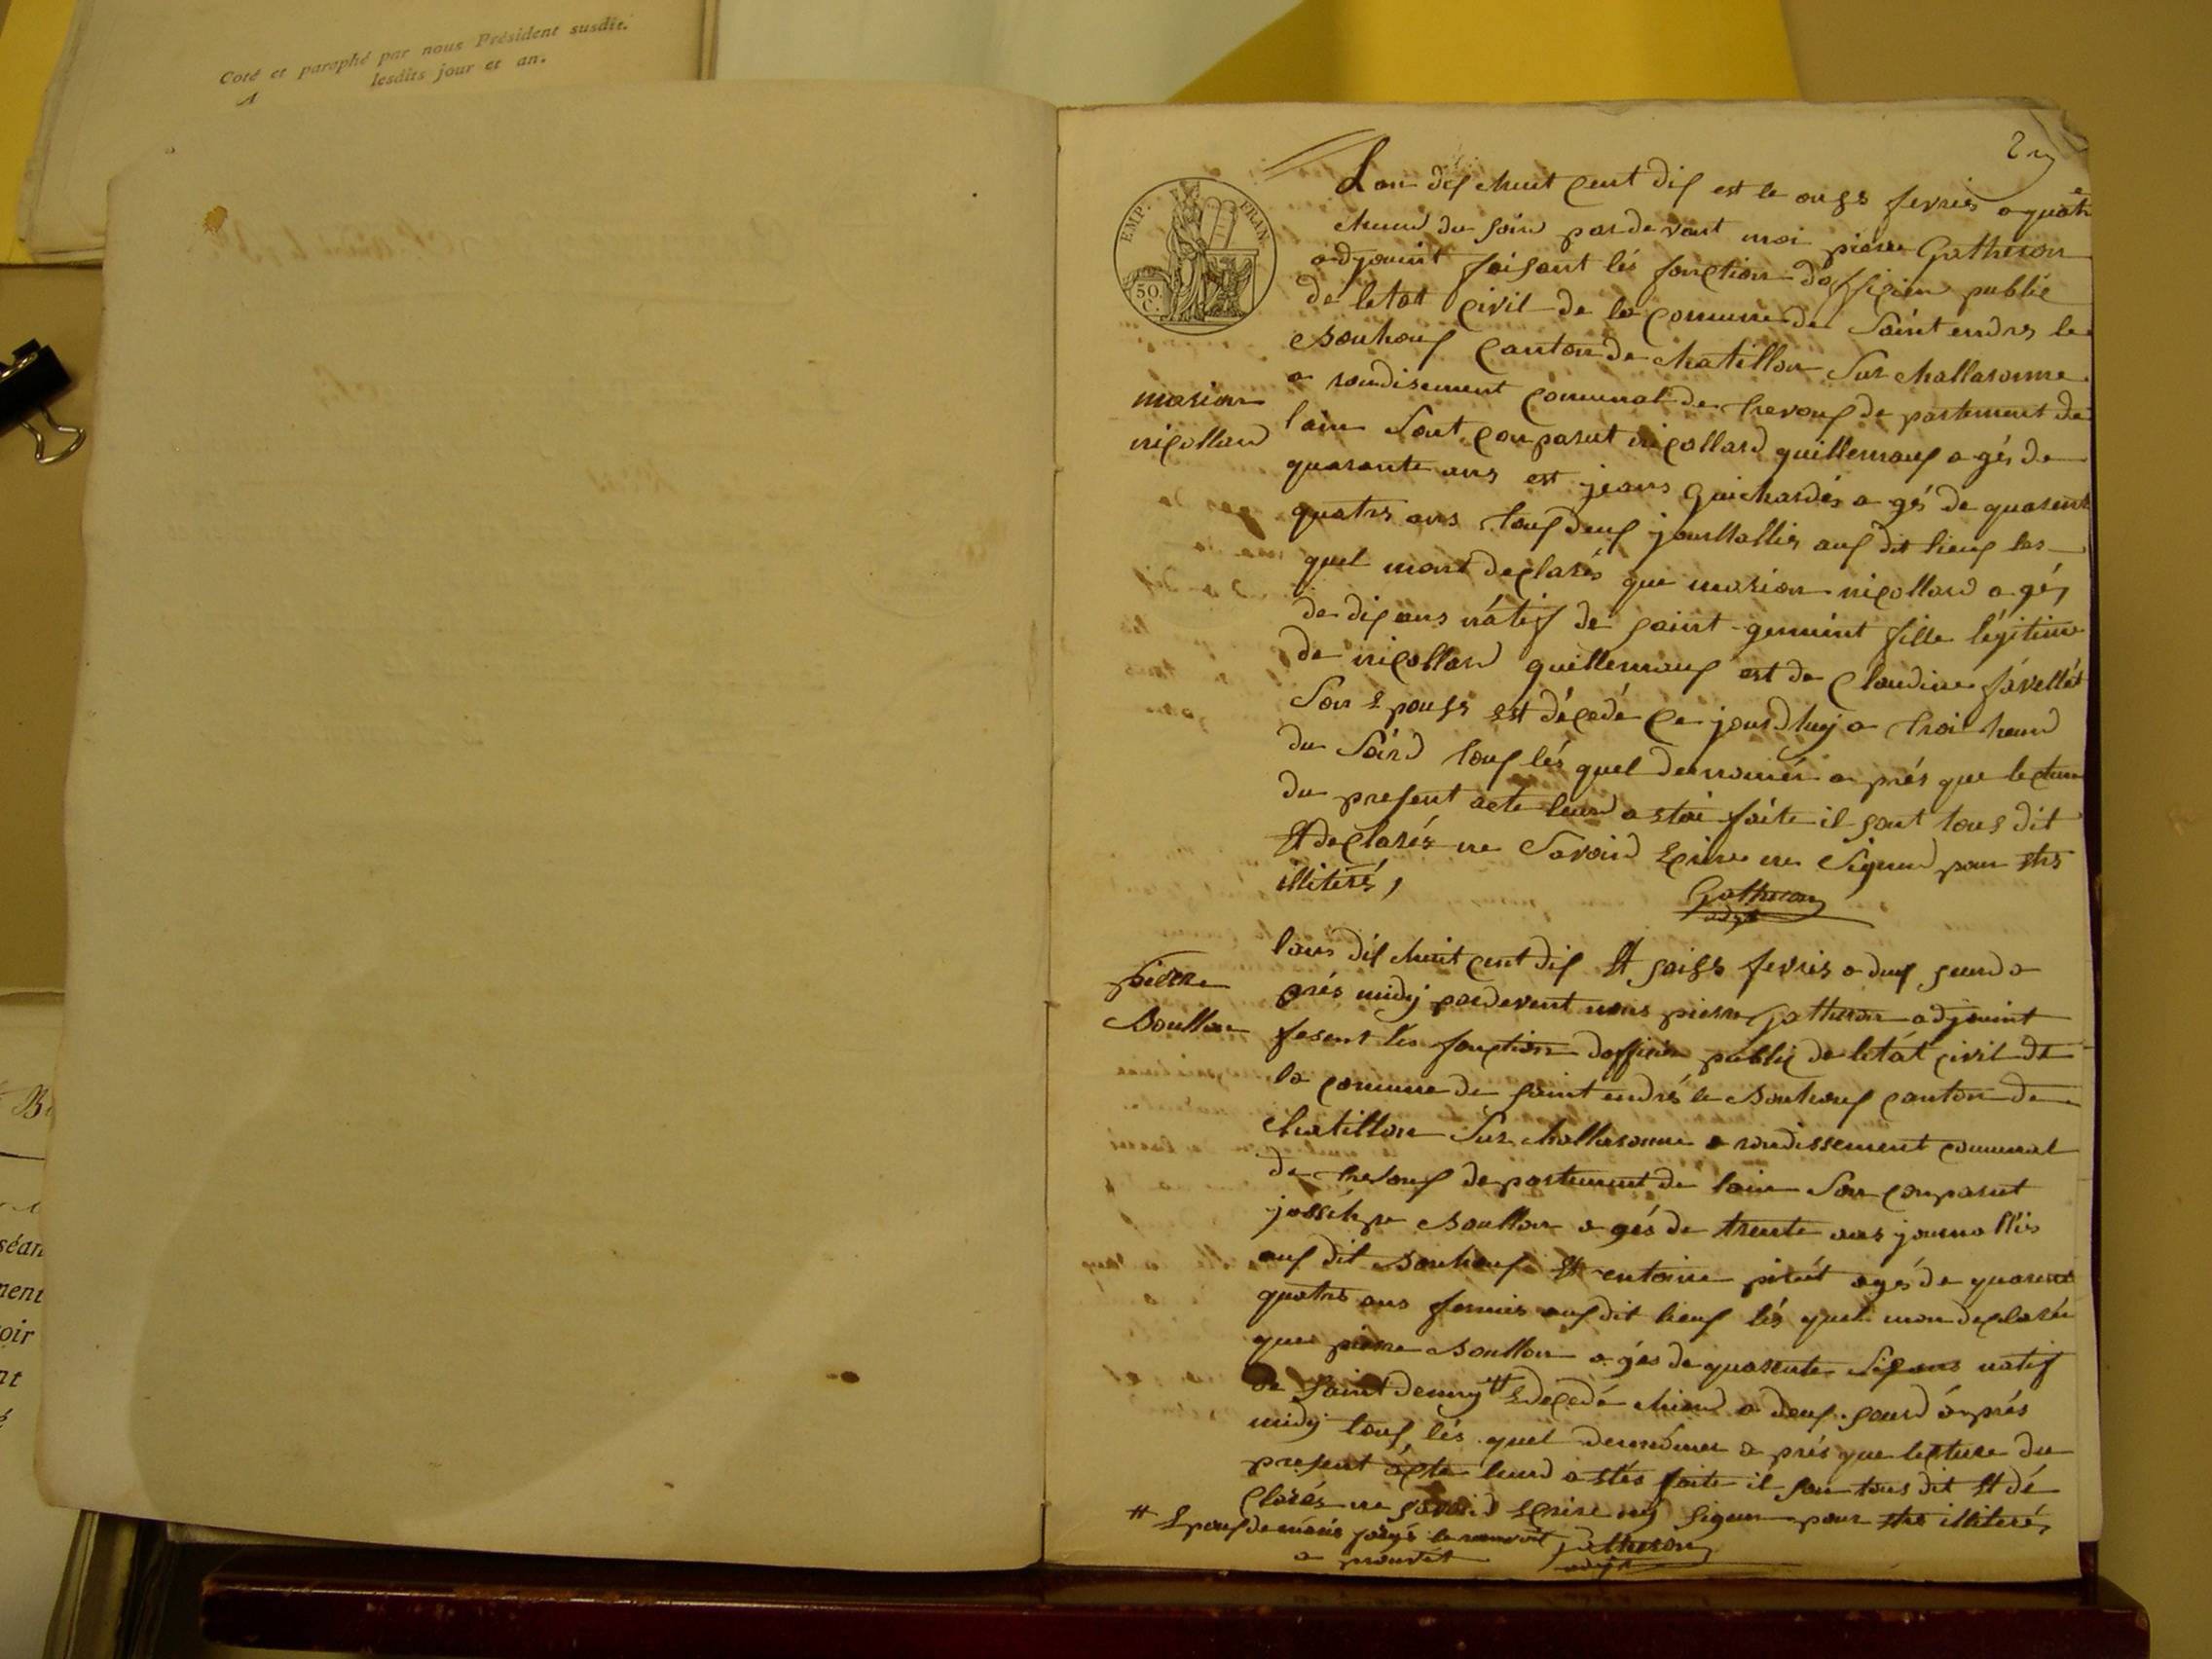 Coté et paraphé par nous Président susdit.
lesdits jour et an.
2
EMP. FRAN.
50 C.
Lan dix chuit cent dix est le onzs fevrié a quatr
cheurd du soird par devant moi pierre Gatheron
adjouint faisant lés fonction dofficier publié
de letat civil de la comune de Saint endrs le
Bouhoux canton de chatillon Sur challaronne
a rondisement comunal de trevoux de partement de
lain Sont conparut nicollard guillermaux a gés de
quarante ans est jeans Guichardés a gés de quarent
quatrs ans toux deux journallié aux dit lieux les
quel mont declarés que marion nicollard a gés
de dix ans nátif de saint gennint fille legitime
de nicollard guillermaux est de Claudine favellét
Son Epouss est décedé ce jourdhuy a troi heurd
du Soird toux lés quel denomér a prés que lecture
du present acte leurd a stai faite il sont tous dit
Et declarés ne Savoird Ecrire ne Signerd pour etrs
illiterés,
Gatheron
adjt
marion
nicollard
lans dix chuit cent dix Et seizs fevrié a deux heurd a
prés midy pardevent nous pierre Gatheron adjouint
fesent lés fonction dofficier public de letát civil de
la comune de saint endrés le Bouhoux canton de
chatillon Sur challaronne a rondissement comunal
de trevoux departement de lain Son conparut
josséhpe Boullon a gés de trente ans journallié
aux dit Bouhoux Et entoine agés de quarent
quatrs ans fermié aux dit lieux lés quel mon declarés
que pierre Boullon a gés de quarente Six ans natif
de saint denny # E decedé chierd a deux heurd áprés
midy toux lés quel denomér a prés que lecture du
present acte leurd a stés faite il son tous dit Et dé
clarés ne savoird Ecrire ny Signer pour etre illiterés,
pierre
Boullon
# Epoux de marie le renvoit
a prouvét
Gatheron
adjt
séan
ment
oir
nt